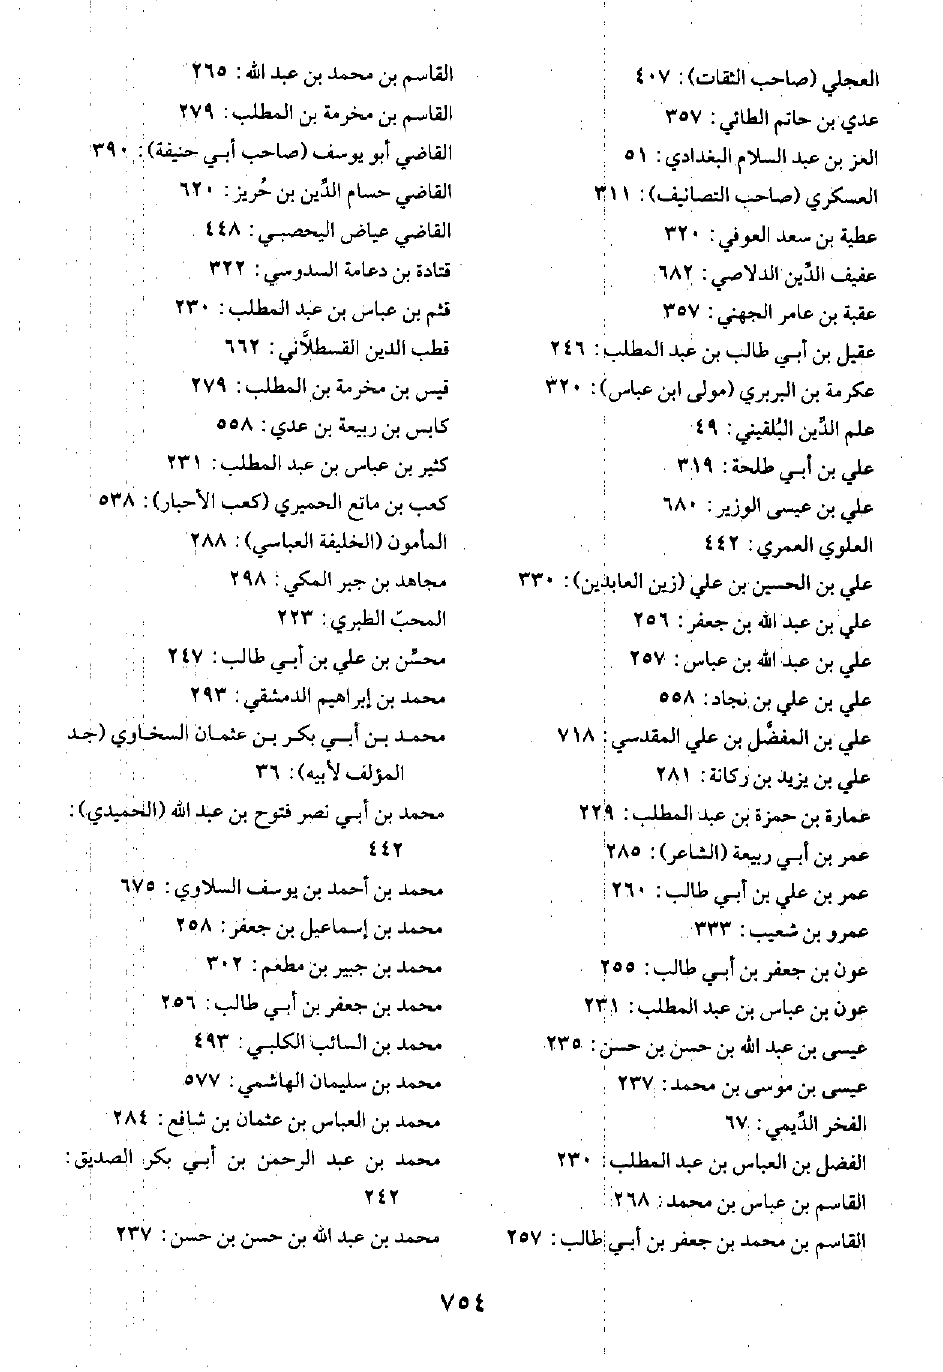 العجلي (صاحب الثقات): ٤٠٧
عدي بن حاتم الطائي: ٣٥٧
العز بن عبد السلام البغدادي: ٥١
العسكري (صاحب التصانيف): ٣١١
عطية بن سعد العوفي: ٣٢٠
عفيف الدِّين الدلاصي: ٦٨٢
عقبة بن عامر الجهني: ٣٥٧
عقيل بن أبي طالب بن عبد المطلب: ٢٤٦
عكرمة بن البربري (مولى ابن عباس): ٣٢٠
علم الدِّين البُلقيني: ٤٩
علي بن أبي طلحة: ٣١٩
علي بن عيسى الوزير: ٦٨٠
العلوي العمري: ٤٤٢
علي بن الحسين بن علي (زين العابدين): ٣٣٠
علي بن عبد الله بن جعفر: ٢٥٦
علي بن عبد الله بن عباس: ٢٥٧
علي بن علي بن نجاد: ٥٥٨
علي بن المفضَّل بن علي المقدسي: ٧١٨
علي بن يزيد بن ركانة: ٢٨١
عمارة بن حمزة بن عبد المطلب: ٢٢٩
عمر بن أبي ربيعة (الشاعر): ٢٨٥
عمر بن علي بن أبي طالب: ٢٦٠
عمرو بن شعيب: ٣٣٣
عون بن جعفر بن أبي طالب: ٢٥٥
عون بن عباس بن عبد المطلب: ٢٣١
عيسى بن عبد الله بن حسن بن حسن: ٢٣٥
عيسى بن موسى بن محمد: ٢٣٧
الفخر الدِّيمي: ٦٧
الفضل بن العباس بن عبد المطلب: ٢٣٠
القاسم بن عباس بن محمد: ٢٦٨
القاسم بن محمد بن جعفر بن أبي طالب: ٢٥٧
القاسم بن محمد بن عبد الله: ٢٦٥
القاسم بن مخرمة بن المطلب: ٢٧٩
القاضي أبو يوسف (صاحب أبي حنيفة): ٣٩٠
القاضي حسام الدِّين بن حُريز: ٦٢٠
القاضي عياض اليحصبي: ٤٤٨
قتادة بن دعامة السدوسي: ٣٢٢
قثم بن عباس بن عبد المطلب: ٢٣٠
قطب الدين القسطلَّاني: ٦٦٢
قيس بن مخرمة بن المطلب: ٢٧٩
كابس بن ربيعة بن عدي: ٥٥٨
كثير بن عباس بن عبد المطلب: ٢٣١
كعب بن ماتع الحميري (كعب الأحبار): ٥٣٨
المأمون (الخليفة العباسي): ٢٨٨
مجاهد بن جبر المكي: ٢٩٨
المحبّ الطبري: ٢٢٣
محسِّن بن علي بن أبي طالب: ٢٤٧
محمد بن إبراهيم الدمشقي: ٢٩٣
محمد بن أبي بكر بن عثمان السخاوي (جد
المؤلف لأبيه): ٣٦
محمد بن أبي نصر فتوح بن عبد الله (الحميدي):
٤٤٢
محمد بن أحمد بن يوسف السلاوي: ٦٧٥
محمد بن إسماعيل بن جعفر: ٢٥٨
محمد بن جبير بن مطعم: ٣٠٢
محمد بن جعفر بن أبي طالب: ٢٥٦
محمد بن السائب الكلبي: ٤٩٣
محمد بن سليمان الهاشمي: ٥٧٧
محمد بن العباس بن عثمان بن شافع: ٢٨٤
محمد بن عبد الرحمن بن أبي بكر الصديق:
٢٤٢
محمد بن عبد الله بن حسن بن حسن: ٢٣٧
٧٥٤